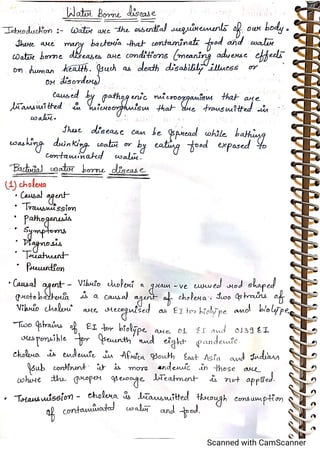 Water Borne disease
Introduction :- Water are the essential requirements of our body.
There are many bacteria that contaminate food and water
Water borne diseases are conditions (meaning adverse effects
on human health. Such as death disability illness or
or disorders)
Caused by pathogenic microorganism that are
transmitted in microorganism that are transmitted in
water.
These disease can be spread while bathing
washing drinking water or by eating food exposed to
contaminated water.
Bacterial water borne disease
(1) cholera
• Causal agent
• Transmission
• Pathogenesis
• Symptoms
• Diagnosis
• Treatment
• Prevention
• Causal agent - Vibrio cholera a gram -ve curved rod shaped
bacteria is a causal agent of cholera. Two strains of
Vibrio cholera are recognised as El tor biotype and biotype
Two strains of El tor biotype are 01 El and 0139 El
responsible for seventh and eight pandemic.
cholera is endemic in Africa South East Asia and Indian
Sub continent it is more endemic in those are
where the proper sewage treatment is not applied.
• Transmission - cholera is transmitted through consumption
of contaminated water and food.
Scanned with CamScanner